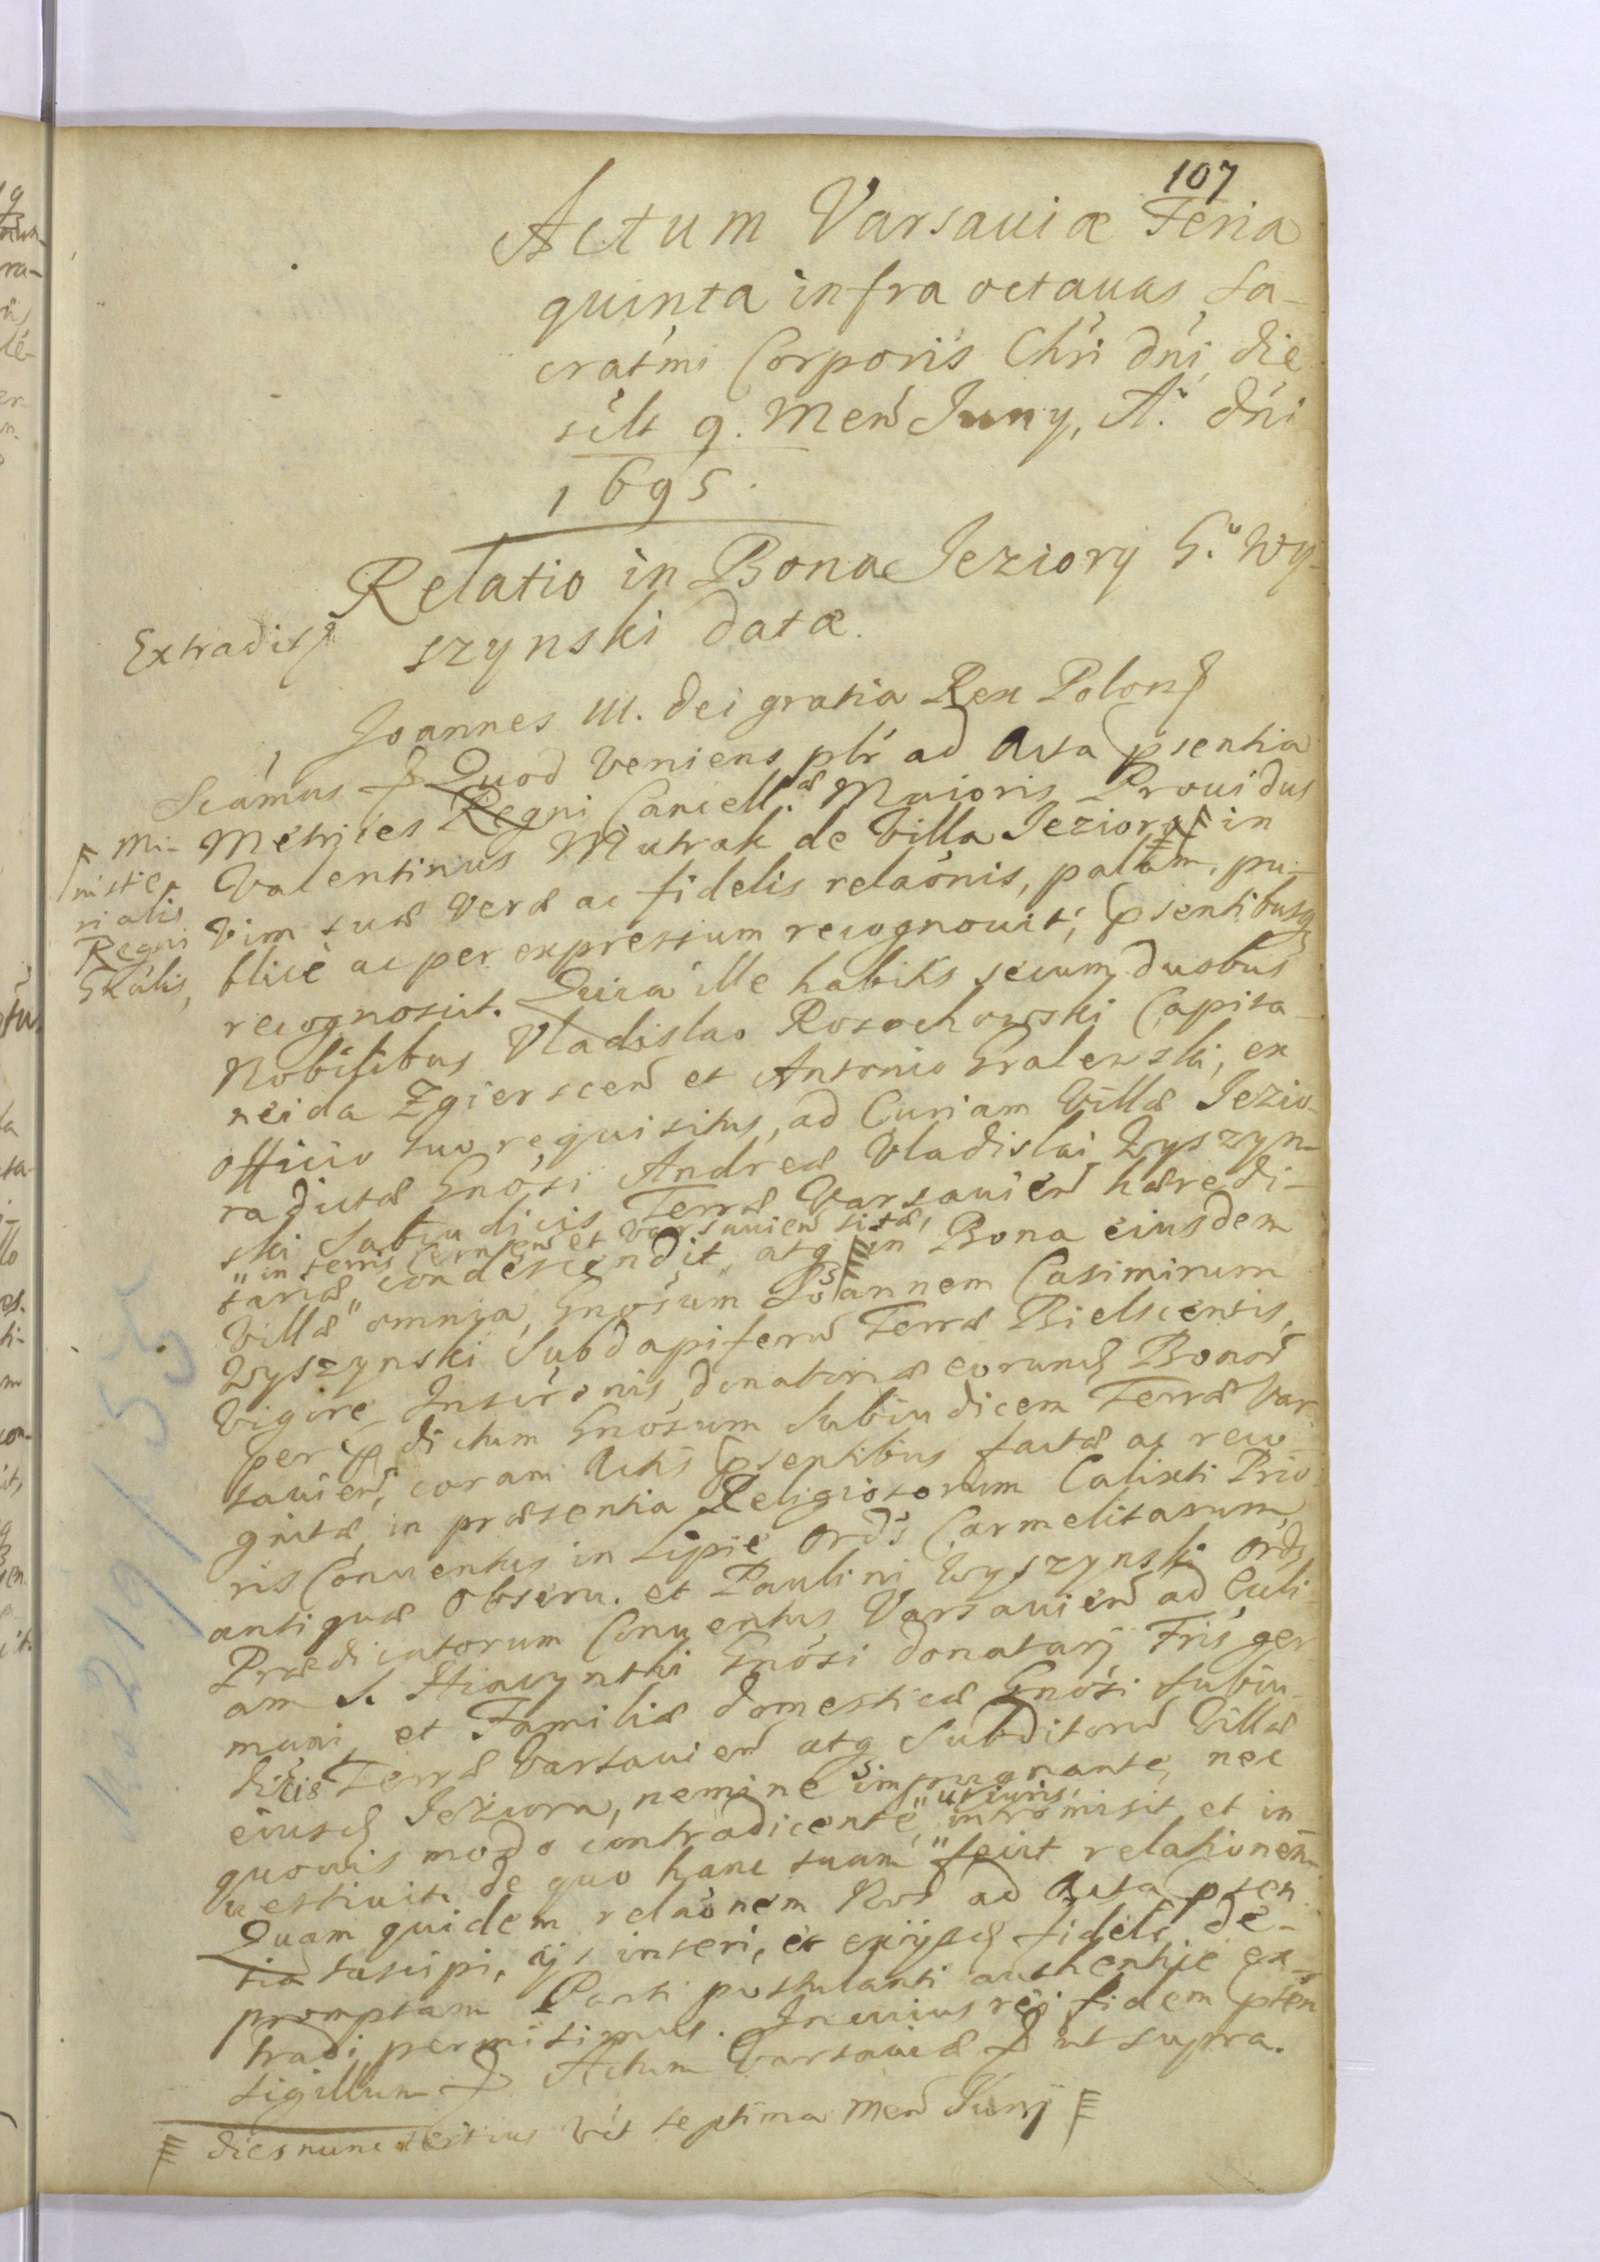 107
Actum Varsauiæ Feria
quinta infra octauas Sa-
cratmi Corporis Chri dni, die
scilt 9. Men Juny, A. dni
1695.
Relatio in Bona Jeziory G. Wy-
szynski datæ.
Extradit
Joannes III. Dei gratia Rex Polon
Sciamus Quod veniens plr ad Acta psentia
Metrices Regni Cancell. Maioris Prouidus
Valentinus Mutrak de Villa Jeziora in
Mi-
niste-
rialis
Regni
Gnalis,
vim suæ veræ ac fidelis relaonis, palam, pu-
blice ac per expressum recognouit, psentibusq
recognoscit. Quia ille habitis secum duobus
Nobilibus Vladislao Rosochowski Capita-
neida Zgierscen et Antonio Gralewski, ex
officio suo requisitus, ad Curiam Villæ Jezio-
ra dictæ Gnosi Andreæ Vladislai Wyszyn-
ski Subiudicis Terræ Varsauien hæredi-
in terris Cernen et Varsauien sitæ,
tariæ condescendit, atq in Bona eiusdem
Villæ omnia, Gnosum Joannem Casimirum
Wyszynski Subdapiferu Terræ Bielscensis,
vigore Inscronis donatoriæ eorund Bonor
per pdictum Gnosum Subiudicem Terræ Var-
sauien, coram Actis psentibus factæ ac reco-
gnitæ, in præsentia Religiosorum Calixti Prio-
ris Conuentus in Lipie Ordis Carmelitarum
antiquæ Obseru. et Paulini Wyszynski Ordis
Prædicatorum Conuentus Varsauien ad Eccli-
am S. Hiacynthi Gnosi donatarj Fris ger-
mani, et Familiæ domesticæ Gnosi Subiu-
dicis Terræ Varsauien atq Subditoru Villæ
eiusd Jeziora, nemine impugnante, nec
uti iuris,
quouis modo contradicente intromisit et in-
uestiuit. de quo hanc suam fecit relationem.
Quam quidem relaonem Nos ad Acta psen-
tia suscipi, ijs inseri, et exijsd fideli de-
promptam Parti postulanti authentice ex-
tradi permisimus. In cuius rei fidem psen
sigillum Actum Varsauiæ ut supra.
dies nunc uerius vit septima Men Junij